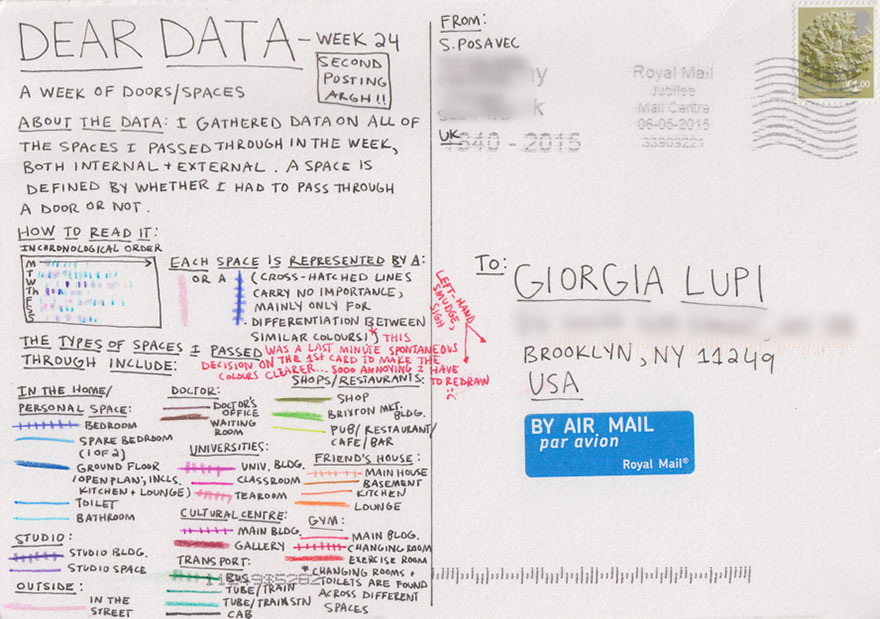 DEAR DATA - WEEK 24
SECOND
POSTING
ARGH!!
A WEEK OF DOORS/SPACES
ABOUT THE DATA: I GATHERED DATA ON ALL OF
THE SPACES I PASSED THROUGH IN THE WEEK,
BOTH INTERNAL + EXTERNAL. A SPACE IS
DEFINED BY WHETHER I HAD TO PASS THROUGH
A DOOR OR NOT.
HOW TO READ IT:
IN CHRONOLOGICAL ORDER
M
T
W
Th
F
S
S
EACH SPACE IS REPRESENTED BY A:
OR A
(CROSS-HATCHED LINES
CARRY NO IMPORTANCE,
MAINLY ONLY FOR
DIFFERENTIATION BETWEEN
SIMILAR COLOURS!)
* THIS
WAS A LAST MINUTE SPONTANEOUS
DECISION ON THE 1ST CARD TO MAKE THE
COLOURS CLEARER... SOOO ANNOYING I HAVE
TO REDRAW
:(
LEFT-HAND
SMUDGE,
SIGH
THE TYPES OF SPACES I PASSED
THROUGH INCLUDE:
IN THE HOME/
PERSONAL SPACE:
BEDROOM
SPARE BEDROOM
(1 OF 2)
GROUND FLOOR
(OPEN PLAN, INCLS.
KITCHEN + LOUNGE)
TOILET
BATHROOM
STUDIO:
STUDIO BLDG.
STUDIO SPACE
OUTSIDE:
IN THE
STREET
DOCTOR:
DOCTOR'S
OFFICE
WAITING
ROOM
UNIVERSITIES:
UNIV. BLDG.
CLASSROOM
TEAROOM
CULTURAL CENTRE:
MAIN BLDG.
GALLERY
TRANSPORT:
BUS
TUBE/TRAIN
TUBE/TRAIN STN
CAB
SHOPS/RESTAURANTS:
SHOP
BRIXTON MKT.
BLDG.
PUB/RESTAURANT/
CAFE/BAR
FRIEND'S HOUSE:
MAIN HOUSE
BASEMENT
KITCHEN
LOUNGE
GYM:
MAIN BLDG.
CHANGING ROOM
EXERCISE ROOM
* CHANGING ROOMS +
TOILETS ARE FOUND
ACROSS DIFFERENT
SPACES
FROM:
S. POSAVEC
UK
Royal Mail
Jubilee
Mail Centre
06-05-2015
33909221
1840 - 2015
£1.00
TO:
GIORGIA LUPI
BROOKLYN, NY 11249
USA
BY AIR MAIL
par avion
Royal Mail®